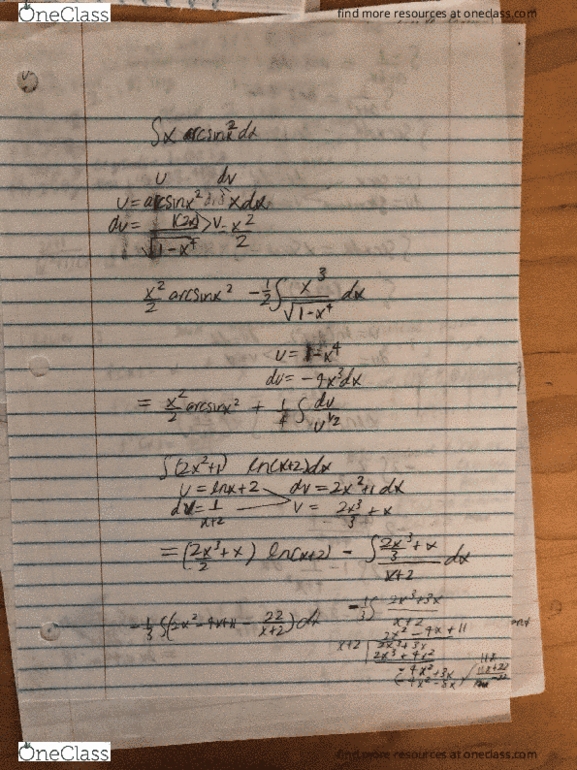 OneClass
find more resources at oneclass.com
∫x arcsinx² dx
u dv
u = arcsinx² xdx
du = 1(2x) / √1-x⁴ > v = x²/2
x²/2 arcsinx² - 1/2 ∫ x³ / √1-x⁴ dx
u = 1-x⁴
du = -4x³dx
= x²/2 arcsinx² + 1/4 ∫ du / u^1/2
∫(2x²+1) ln(x+2)dx
u = lnx+2 dv = 2x²+1 dx
du = 1/x+2 v = 2x³/3 + x
= (2x³/2 + x) ln(x+2) - ∫ 2x³/3 + x / x+2 dx
-1/3 ∫ 2x³+3x / x+2
-1/3 ∫(2x²-4x+11 - 22/x+2) dx
2x² - 4x + 11
x+2 | 2x³+3x
2x³+4x²
-4x²+3x
-4x²-8x
11x
11x+22
-22
OneClass
find more resources at oneclass.com